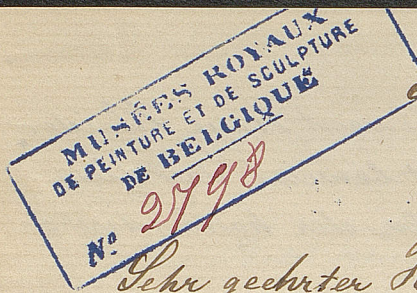 MUSÉES ROYAUX
DE PEINTURE ET DE SCULPTURE
DE BELGIQUE
Nº 2798
Sehr geehrter